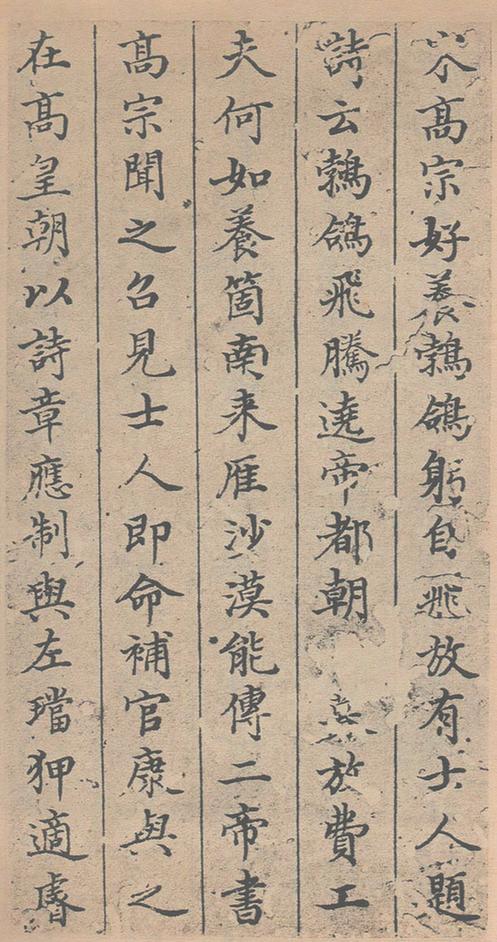 高宗好養鵓鴿躬自飛放有士人題
詩云鵓鴿飛騰遶帝都朝放費工
夫何如養箇南来雁沙漠能傳二帝書
髙宗聞之召見士人即命補官康與之
在髙皇朝以詩章應制與左璫狎適睿